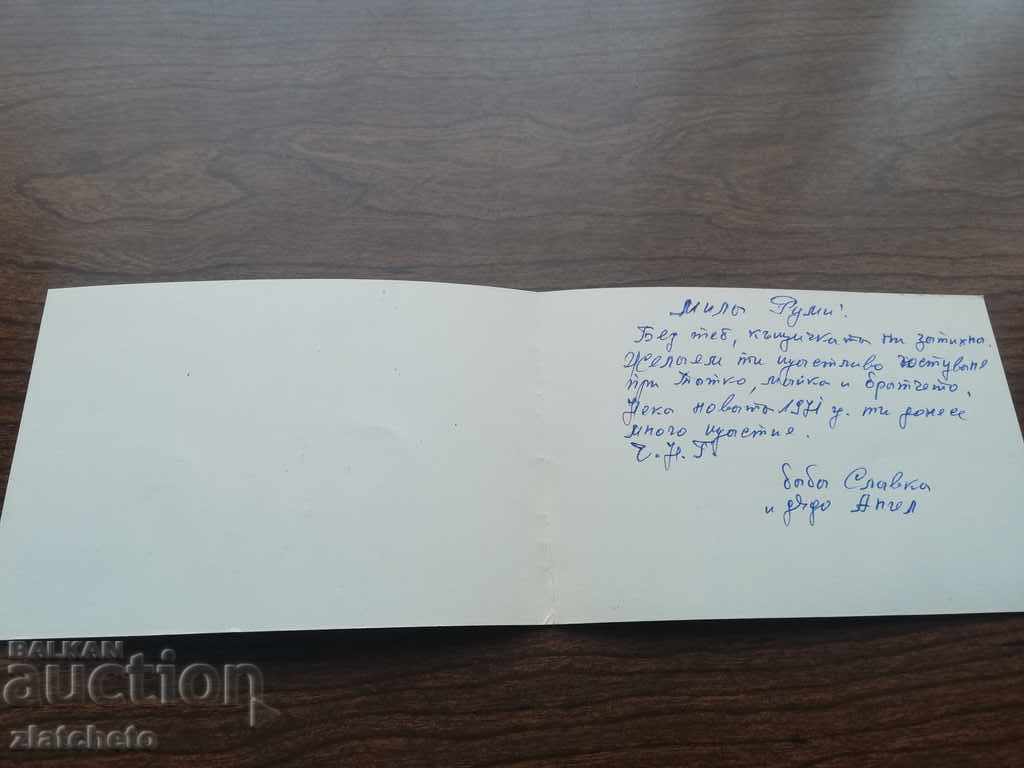 Мила Руми!
Без теб, къщичката ни затихна.
Желаем ти щастливо гостуване
при татко, майка и братчето.
Нека новата 1971 г. ти донесе
много щастие.
Ч.Н.Г.
баба Славка
и дядо Ангел
BALKAN
auction
zlatcheto